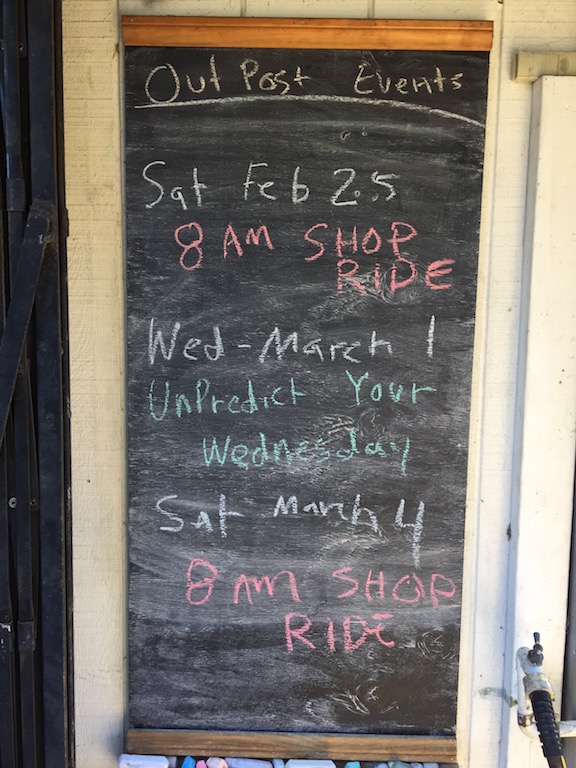 Out Post Events
Sat Feb 25
8 AM SHOP
RIDE
Wed - March 1
UnPredict Your
Wednesday
Sat March 4
8 AM SHOP
RIDE